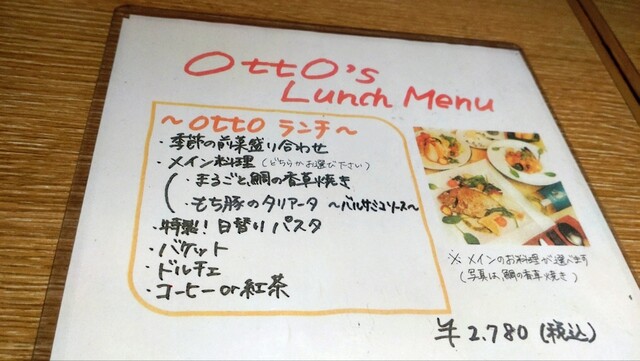 OttO's
Lunch Menu
～OttO ランチ～
・季節の前菜盛り合わせ
・メイン料理（どちらかお選び下さい）
・まるごと鯛の香草焼き
・もち豚のタリアータ ～バルサミコソース～
・特製！日替りパスタ
・バケット
・ドルチェ
・コーヒーor紅茶
※ メインのお料理が選べます
（写真は、鯛の香草焼き）
¥2.780（税込）